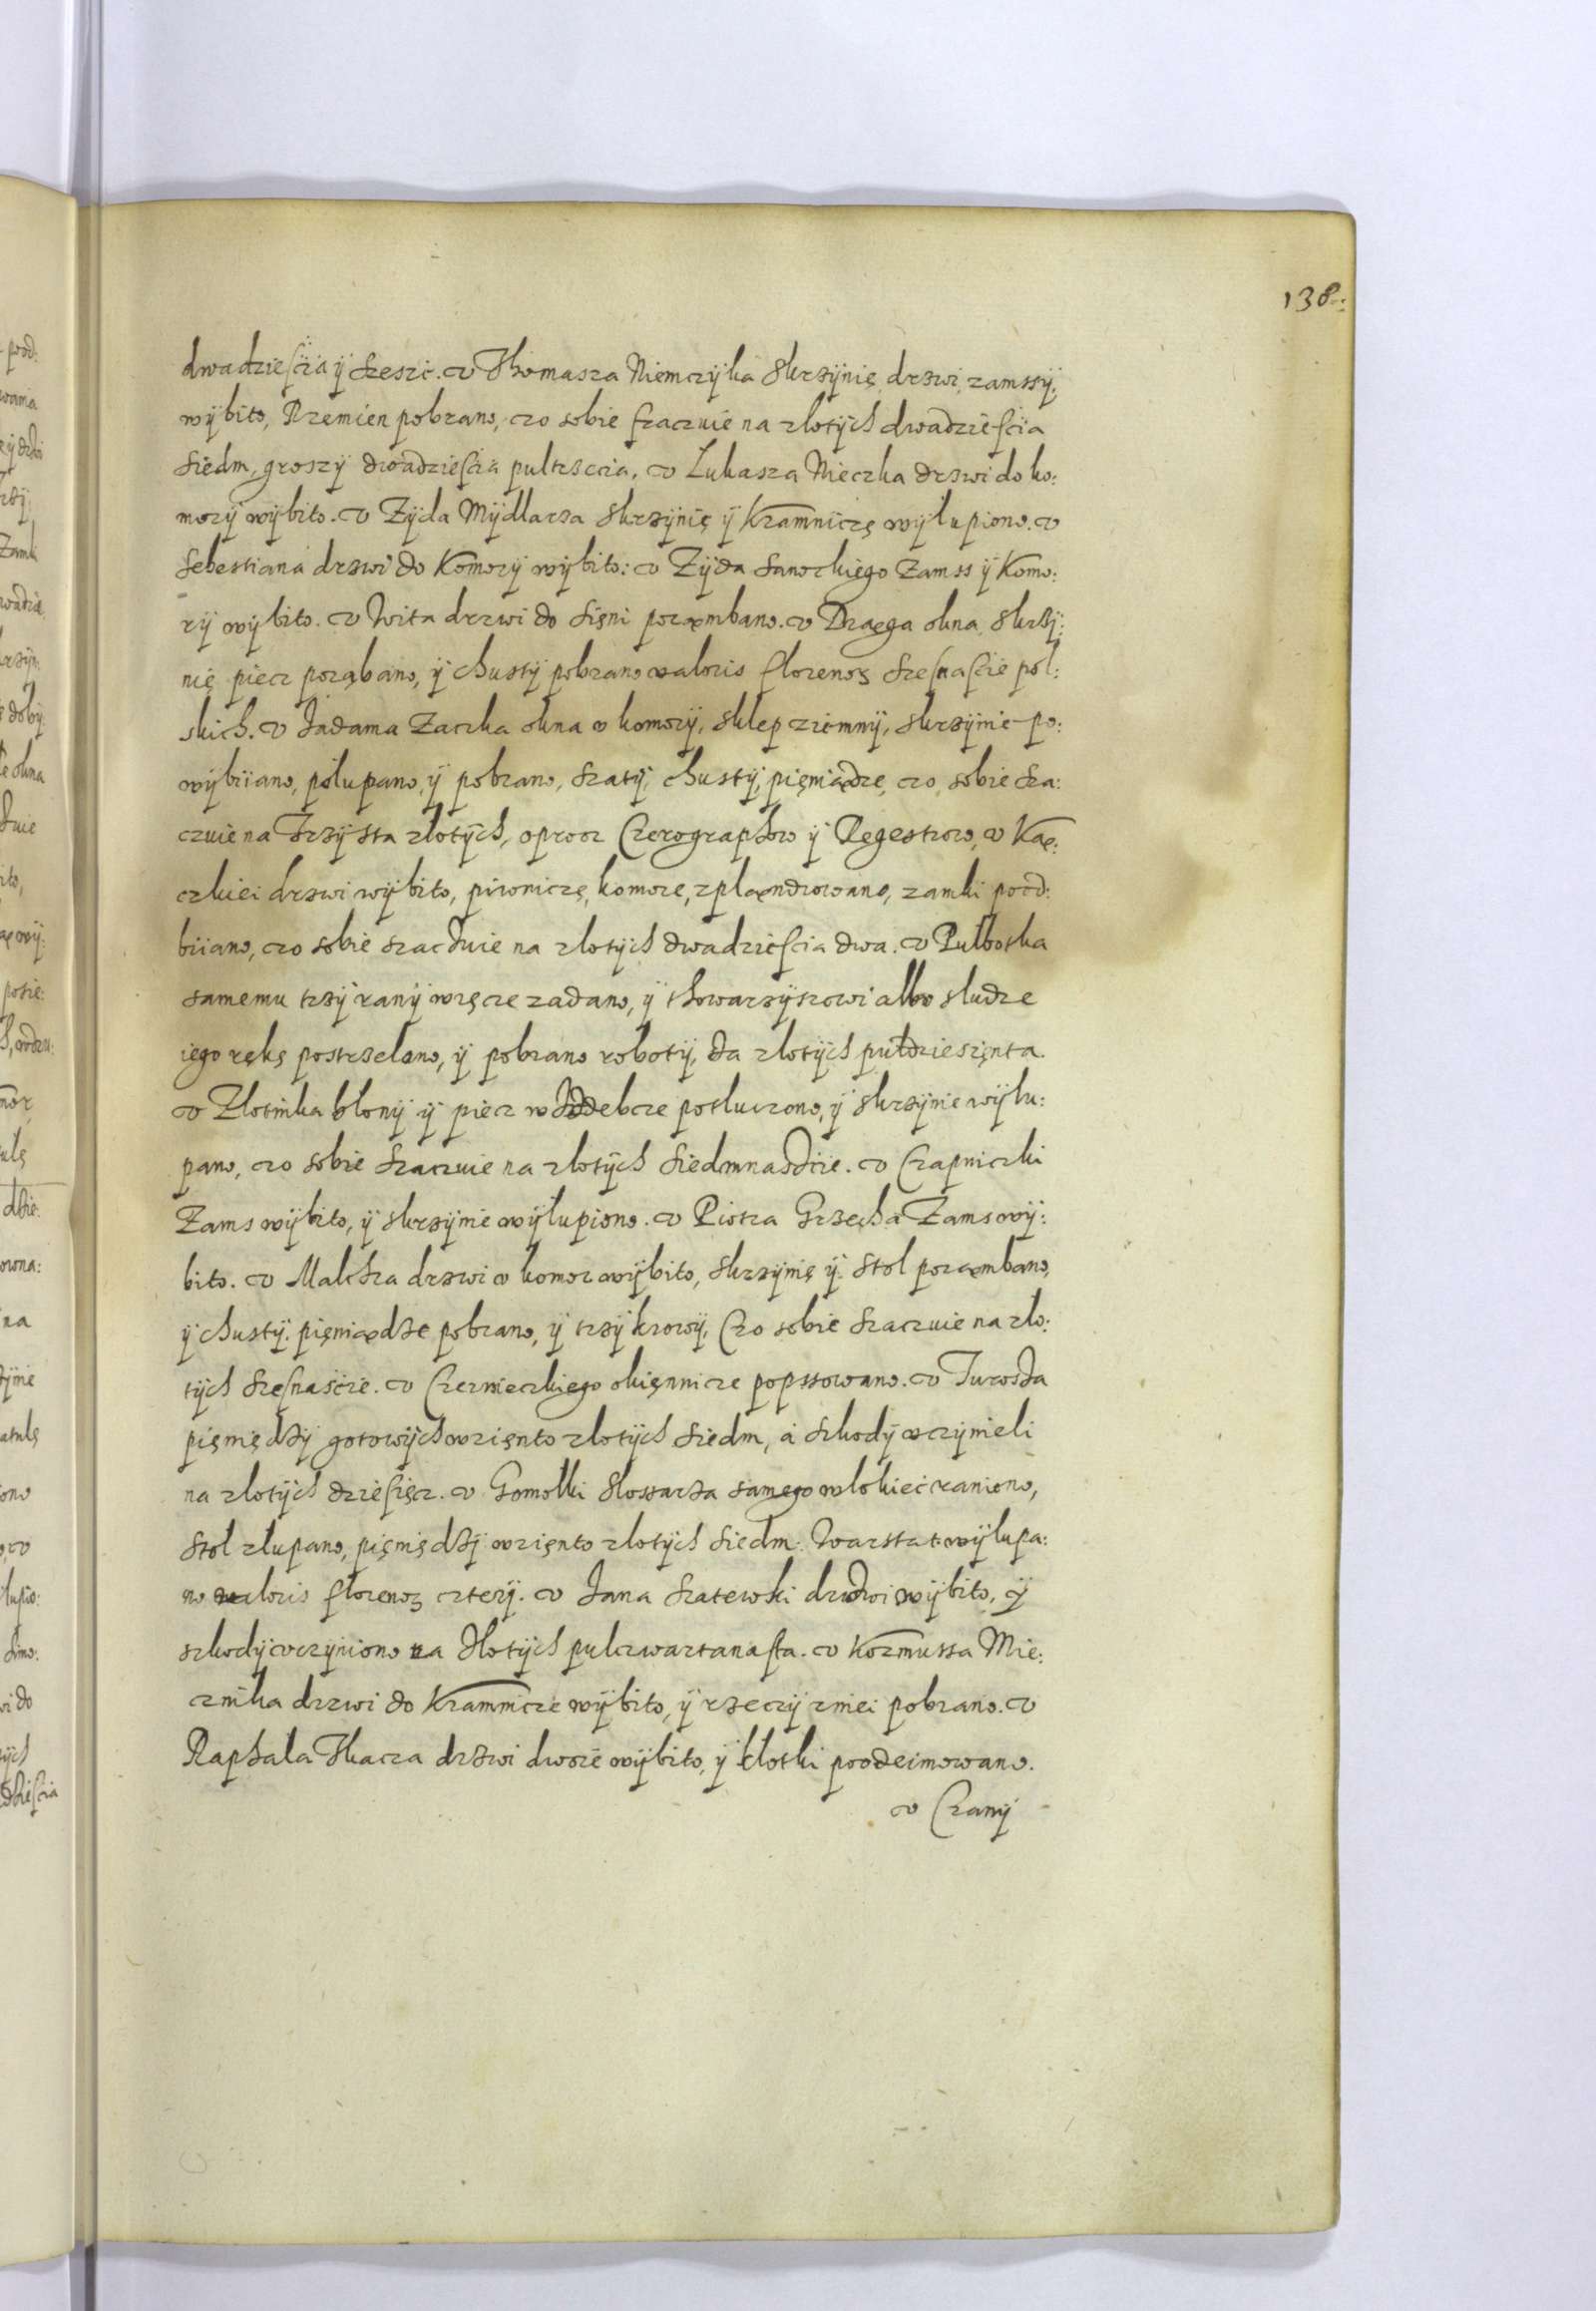 138.
dwadzieſcia ÿ szesic. v Thomasza Niemczÿka skrzÿnię drzwi zamssÿ,
wÿbito, Rzemien pobrano, czo sobie szaczuie na zlotÿch dwadzieſcia
siedm, groszÿ dwadzieſcia pultrzecia. v Lukasza Nieczka drzwi do ko:
morÿ wÿbito. v Zÿda Mÿdlarza skrzÿnię ÿ kramniczę wÿlupiono. v
Sebestiana drzwi do Komorÿ wÿbito: v Zÿda Sanockiego Zamss ÿ Komo:
rÿ wÿbito. v Wita drzwi do sięni porambano. v Draega okna, skrzÿ:
nię piecz porąbano, ÿ chustÿ pobrano valoris florenos szeſnaſcie pol:
skich. v Jadama Zaczka okna v komorÿ, sklep ziemnÿ, skrzÿnie po:
wÿbiiano, polupano, ÿ pobrano, szatÿ, chustÿ, pięniądze, czo sobie sza:
czuie na Trzÿsta zlotÿch, oprocz Czerographow ÿ Regestrow, v Kae:
czkiei drzwi wÿbito, piwniczę, komorę, zplaendrowano, zamki pood:
biiano, czo sobie szacduie na zlotÿch dwadzieſcia dwa. v Pulbotka
samemu trzÿ ranÿ wręcze zadano, ÿ thowarzÿszowi albo sludze
iego rękę postrzelono, ÿ pobrano robotÿ, da zlotÿch puldziesięnta.
v Zlotnika blonÿ ÿ piecz w Izdebcze potluczono, ÿ skrzÿnie wÿlu:
pano, czo sobie szaczuie na zlotÿch siedmnasdcie. v Czapniczki
Zams wÿbito, ÿ skrzÿnie wÿlupiono. v Piotra Grzecha Zams wÿ:
bito. v Malchra drzwi v komor wÿbito, skrzÿnię ÿ stol porambano,
ÿ chustÿ. pięniądze pobrano, ÿ trzÿ krowÿ, Czo sobie szaczuie na zlo:
tÿch szeſnaście. v Czernieczkiego okięnnicze popssowano. v Turosza
pięniędzÿ gotowÿch wzięnto zlotÿch siedm, a szkodÿ vczÿnieli
na zlotÿch dzieſięcz. v Gomolki slossarza samego w lokiec raniono,
stol zlupano, pięniędzÿ wzięnto zlotÿch siedm. Warstat wÿlupa:
no valoris florenos czterÿ. v Jana Szatewski drzwi wÿbito, ÿ
szkodÿ vczÿniono na zlotÿch pulczwartanaſta. v Kozmussa Mie:
cznika drzwi do Kramnicze wÿbito, ÿ rzeczÿ zniei pobrano. v
Raphala Tkacza drzwi dwoie wÿbito, ÿ klotki poodeimowano.
v Czarnÿ